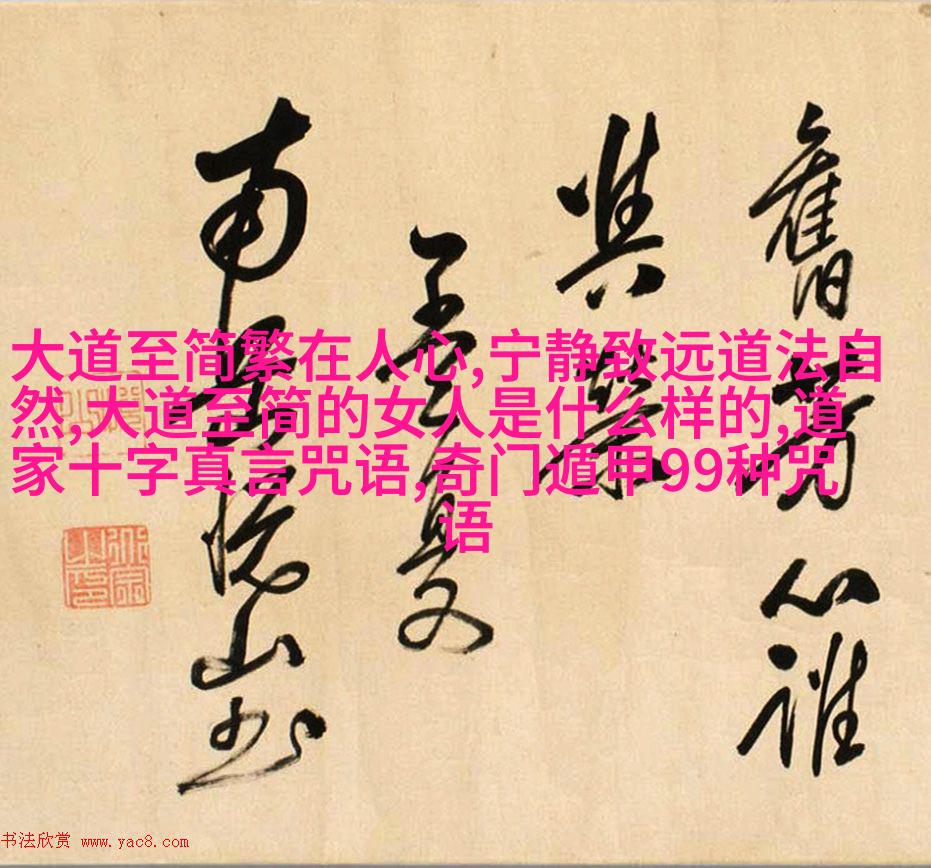 大道至简繁在人心,宁静致远道法自
然,大道至简的女人是什么样的,道
家十字真言咒语,奇门遁甲99种咒
语
舊勞心誰
與
孟夏
南悅山书
书法欣赏 www.yac8.com